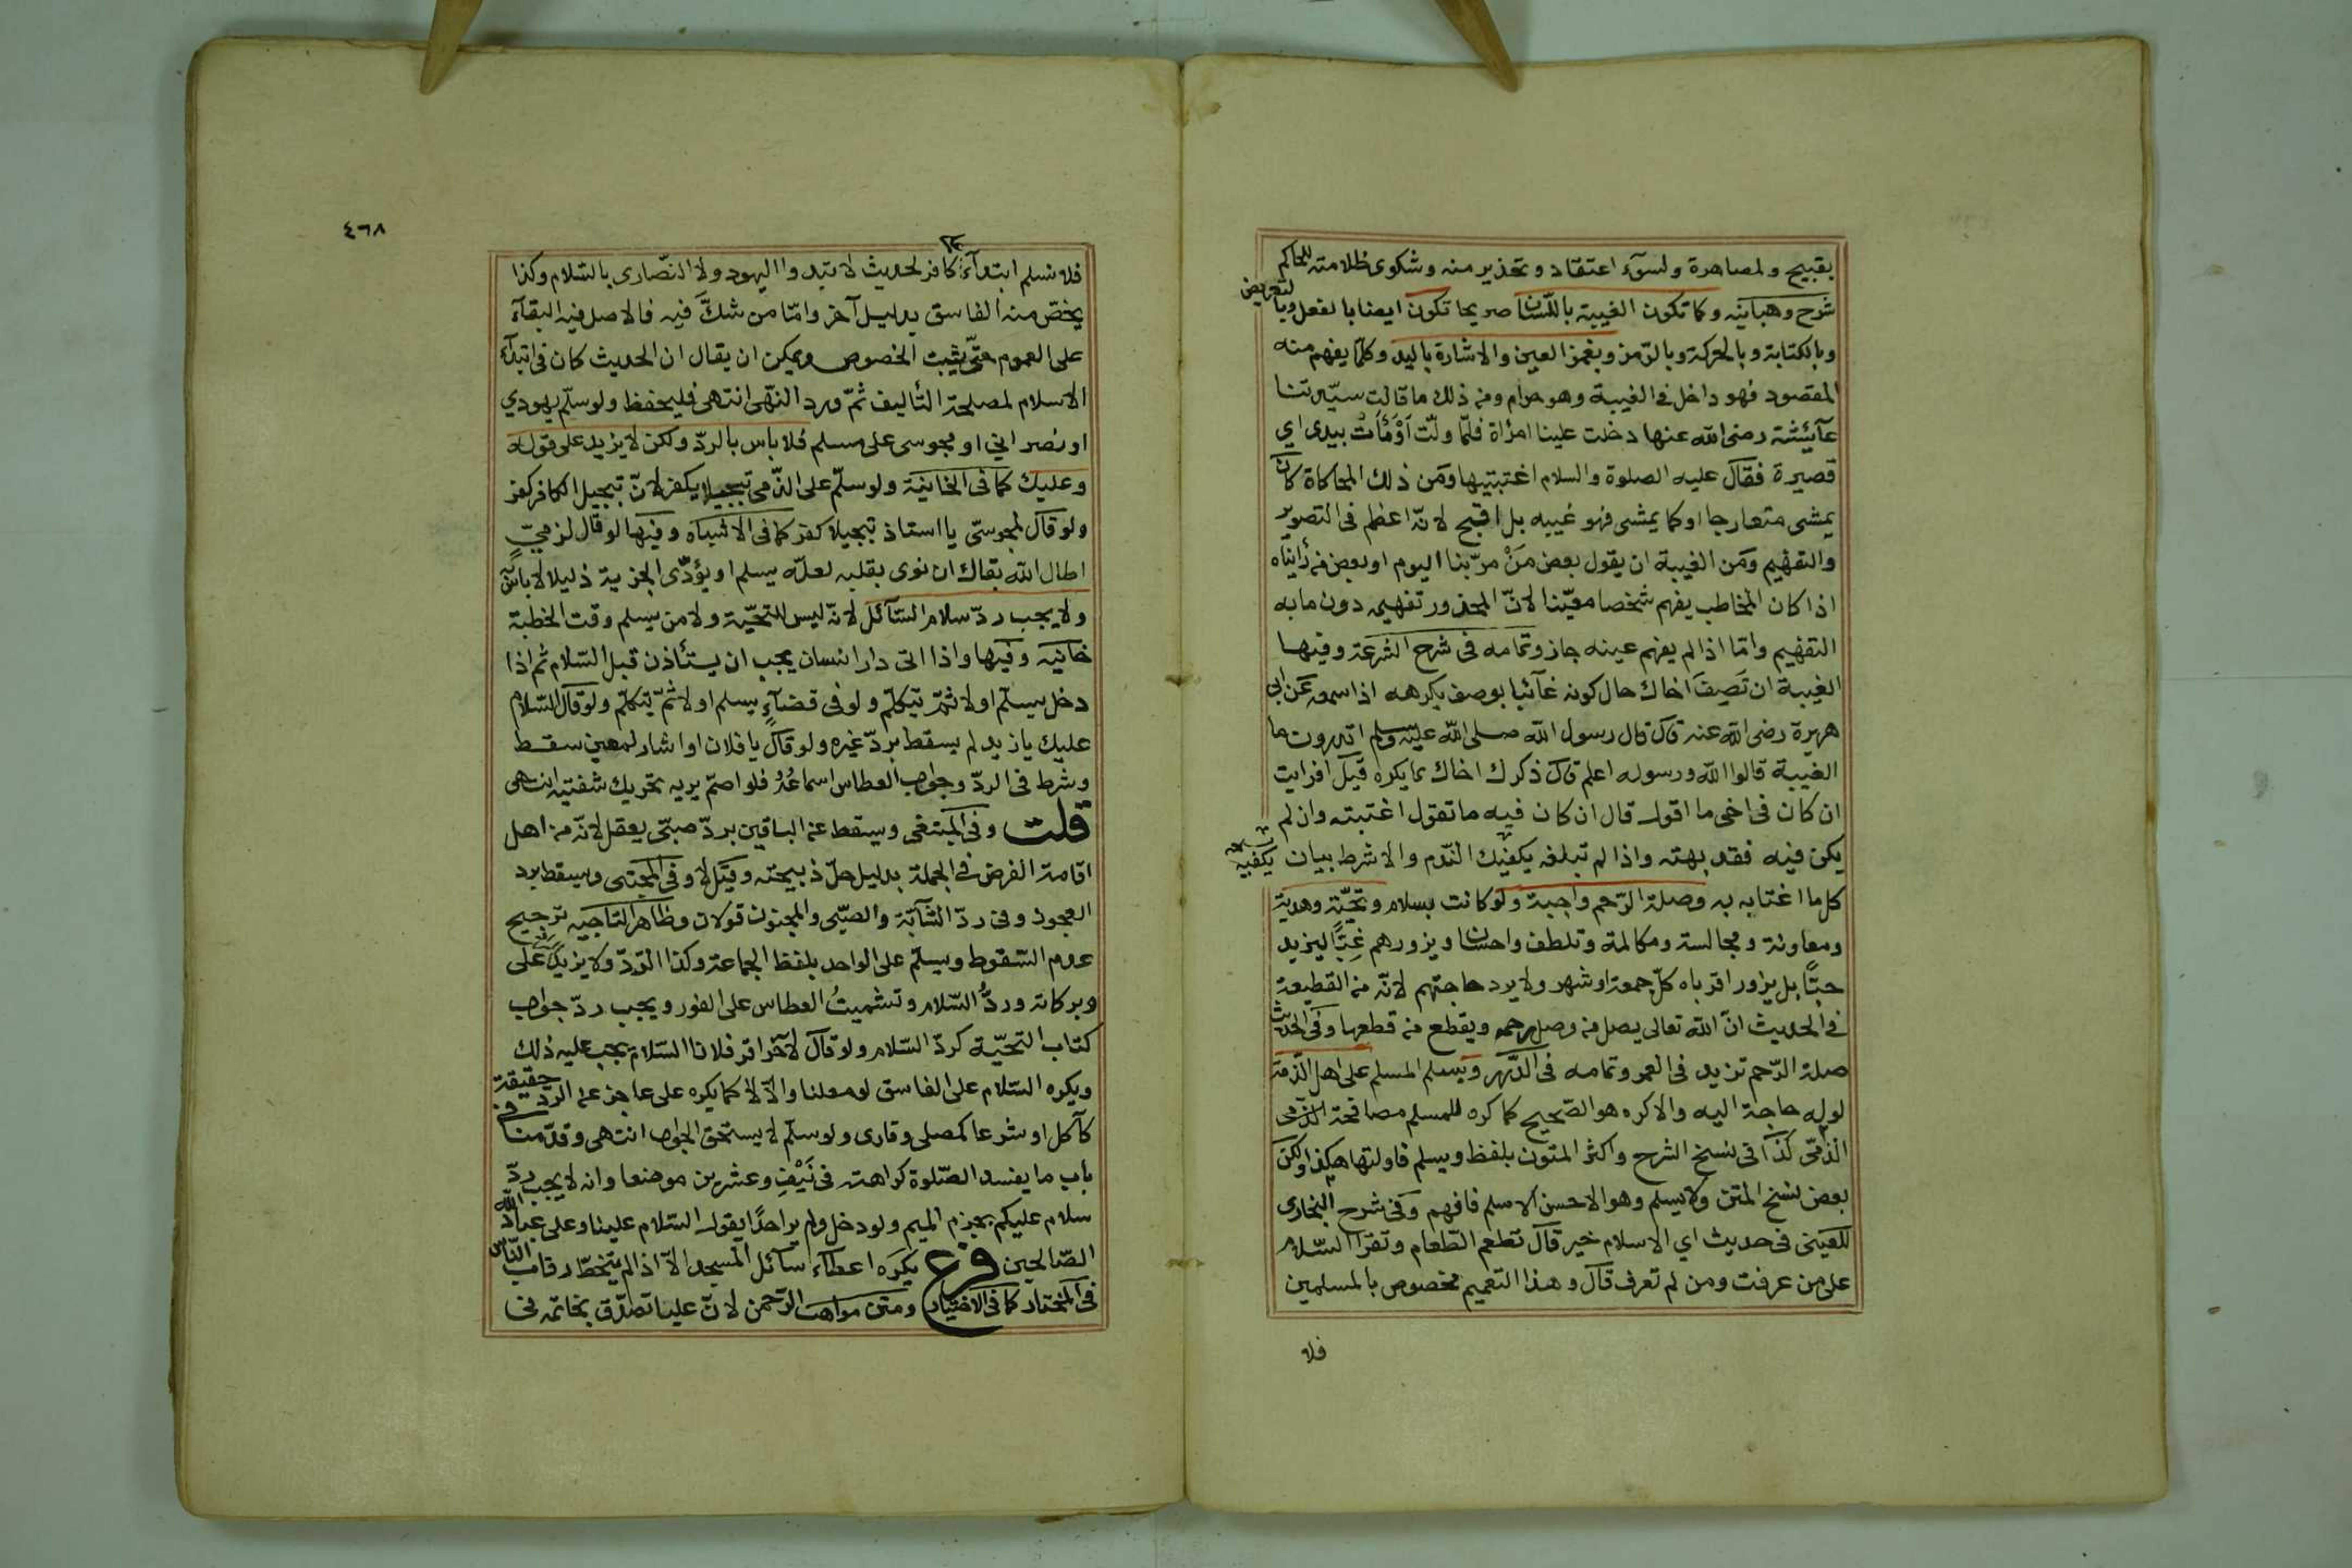 بقبيح ولمصاهرة ولسوء اعتقاد وتحذير منه وشكوى ظلامته للحاكم
شرح وهبانيه وكما تكون الغيبة باللسان صريحا تكون ايضا بالفعل وبالتعريض
وبالكتابة وبالحركة وبالرمز وبغمز العين والاشارة باليد وكلما يفهم منه
المقصود فهو داخل في الغيبة وهو حرام ومن ذلك ما قالت سيدتنا
عآئشة رضى الله عنها دخلت علينا امرأة فلمّا ولّت اَوْمَأْتُ بيدى اي
قصيرة فقال عليه الصلوة والسلام اغتبتيها ومن ذلك المحاكاة كان
يمشى متعارجا او كما يمشى فهو غيبه بل اقبح لانّه اعظم فى التصوير
والتفهيم ومن الغيبة ان يقول بعض مَنْ مرّ بنا اليوم او بعض من رأيناه
اذا كان المخاطب يفهم شخصا معيّنا لانّ المحذور تفهيمه دون ما به
التفهيم وامّا اذا لم يفهم عينه جاز وتمامه فى شرح الشرعة وفيها
الغيبة ان تَصِفَ اخاك حال كونه غآئبا بوصف يكرهه اذا سمعه عن ابى
هريرة رضى الله عنه قال قال رسول الله صلى الله عليه وسلم اتدرون ما
الغيبة قالوا الله ورسوله اعلم قال ذكرك اخاك بما يكره قيل افرايت
ان كان فى اخى ما اقول قال ان كان فيه ما تقول اغتبته وان لم
يكن فيه فقد بهته واذا لم تبلغه يكفيك النّدم والا شرط بيان
يكفيه
كل ما اغتابه به وصلة الرّحم واجبة ولو كانت بسلام وتحيّة وهدية
ومعاونة ومجالسة ومكالمة وتلطف واحسان ويزورهم غِبًّا ليزيد
حبًّا بل يزور اقرباه كلّ جمعة او شهر ولا يرد حاجتهم لانّه من القطيعة
فى الحديث انّ الله تعالى يصل من وصل رحمه ويقطع من قطعها وفى الحديث
صلة الرّحم تزيد فى العمر وتمامه فى الدّرر ويسلم المسلم على اهل الذّمة
لو له حاجة اليه والا كره هو الصّحيح كما كره للمسلم مصافحة الذّمى
الذّمّى كذا فى نسخ الشرح واكثر المتون بلفظ ويسلم فاولتها هكذا ولكن
بعض نسخ المتن ولا يسلم وهو الاحسن الاسلم فافهم وفى شرح البخارى
للعينى فى حديث اي الاسلام خير قال تطعم الطّعام وتقرأ السّلام
على من عرفت ومن لم تعرف قال وهذا التعميم مخصوص بالمسلمين
فلا
٤٦٨
فلا نسلم ابتدآء كافر لحديث لا تبدوا اليهود ولا النّصارى بالسّلام وكذا
يخصّ منه الفاسق بدليل آخر وامّا من شكّ فيه فالاصل فيه البقآء
على العموم حتّى يثبت الخصوص ويمكن ان يقال ان الحديث كان فى ابتدآء
الاسلام لمصلحة التّأليف ثمّ ورد النّهى انتهى فليحفظ ولو سلّم يهودي
او نصراني او مجوسى على مسلم فلا باس بالردّ ولكن لا يزيد على قوله
وعليك كما فى الخانية ولو سلّم على الذّمى تبجيلا يكفر لانّ تبجيل الكافر كفر
ولو قال لمجوسىّ يا استاذ تبجيلا كفر كما فى الاشباه وفيها لو قال لذميّ
اطال الله بقاك ان نوى بقلبه لعلّه يسلم او يؤدّى الجزية ذليلا لا باس به
ولا يجب ردّ سلام السّآئل لانّه ليس للتحيّة ولا من يسلم وقت الخطبة
خانيه وفيها واذا اتى دار انسان يجب ان يستأذن قبل السّلام ثم اذا
دخل يسلّم اولا ثمّ يتكلّم ولو فى قضآء يسلم اولا ثمّ يتكلّم ولو قال السّلام
عليك يا زيد لم يسقط بردّ غيره ولو قال يا فلان او اشار لمعين سقط
وشرط فى الردّ وجواب العطاس اسماعُهُ فلو اصمّ يريه تحريك شفتيه انتهى
قلت وفى المبتغى ويسقط عن الباقين بردّ صبىّ يعقل لانّه من اهل
اقامة الفرض فى الجملة بدليل حلّ ذبيحته وقيل لا وفى المجتبى ويسقط برد
العجوز وفى ردّ الشّآبّة والصّبى والمجنون قولان وظاهر التاجيه ترجيح
عدم السّقوط ويسلّم على الواحد بلفظ الجماعة وكذا الرّدّ ولا يزيد على
وبركاته وردُّ السّلام وتشميتُ العطاس على الفور ويجب ردّ جواب
كتاب التحيّة كردّ السّلام ولو قال لآخر اقر فلانا السّلام يجب عليه ذلك
ويكره السّلام على الفاسق لو معلنا والّا لا كما يكره على عاجز عن الردّ حقيقة
كآكل او شرعا كمصلى وقارى ولو سلّم لا يستحق الجواب انتهى وقدّمنا فى
باب ما يفسد الصّلوة كراهته فى نَيْفٍ وعشرين موضعا وانه لا يجب ردّ
سلام عليكم بجزم الميم ولو دخل ولم ير احدًا يقول السّلام علينا وعلى عباد الله
الصّالحين فرع يكره اعطآء سآئل المسجد الّا اذا لم يتخطّ رقاب النّاس
فى المختار كما فى الاختيار ومتن مواهب الرّحمن لانّ عليا تصدّق بخاتمه فى